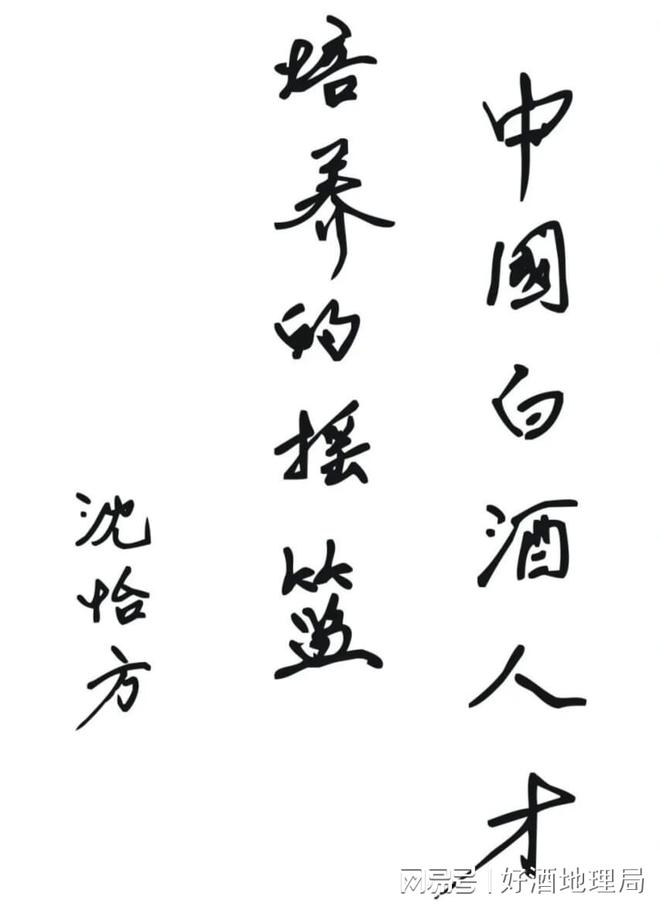 中國白酒人才
培养的摇篮
沈怡方
网易号 | 好酒地理局